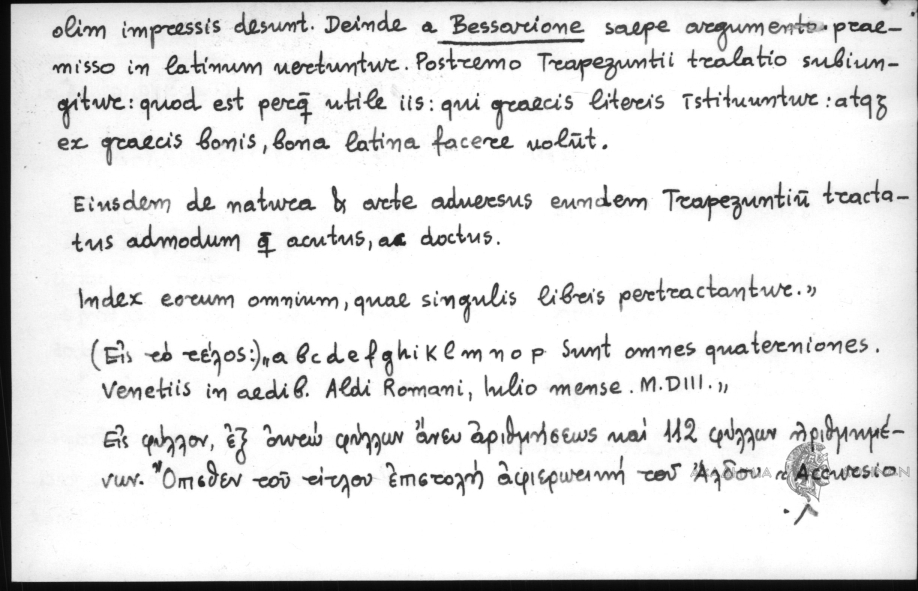 olim impressis desunt. Deinde a Bessarione saepe argumento prae-
misso in latinum uertuntur. Postremo Trapezuntii tralatio subiun-
gitur: quod est perq̄ utile iis: qui graecis literis īstituuntur: atqʒ
ex graecis bonis, bona latina facere uolūt.
Eiusdem de natura & arte aduersus eundem Trapezuntiū tracta-
tus admodum q̄ acutus, ac doctus.
Index eorum omnium, quae singulis libris pertractantur.„
(Εἰς τὸ τέλος:)„a b c d e f g h i K l m n o p Sunt omnes quaterniones.
Venetiis in aedib. Aldi Romani, Iulio mense. M.DIII.„
Εἰς φύλλον, ἐξ ὀκτὼ φύλλων ἄνευ ἀριθμήσεως καὶ 112 φύλλων ἠριθμημέ-
νων. Ὄπισθεν τοῦ τίτλου ἐπιστολὴ ἀφιερωτικὴ τοῦ Ἄλδου Accursio
./.